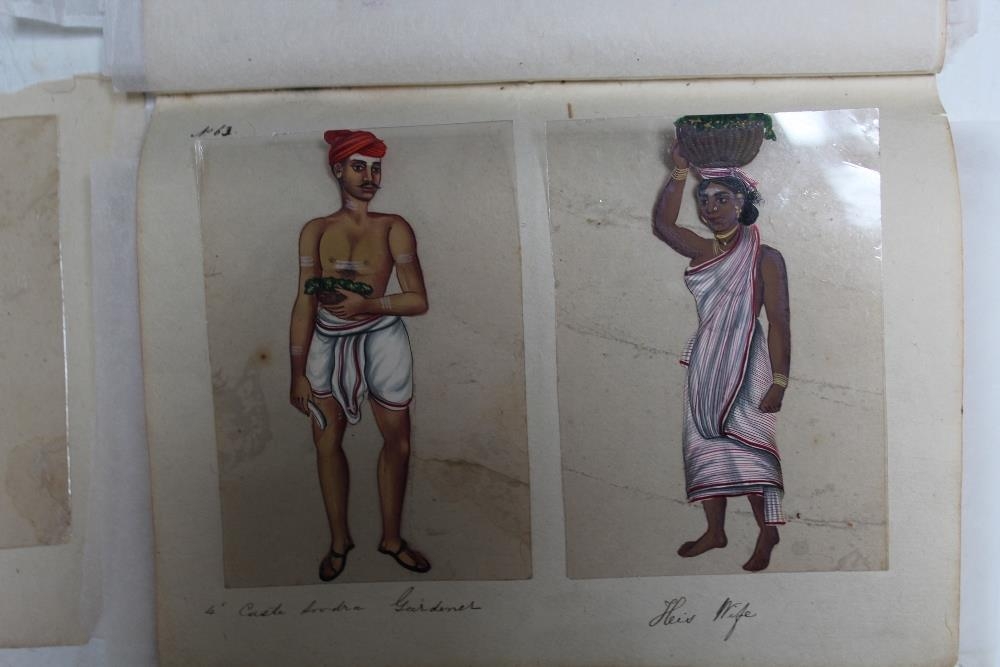 No 63
4' Caste Soodra Gardener
Heis Wife